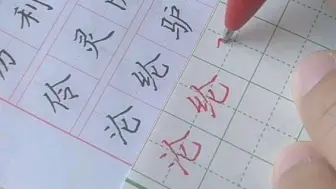 利
伶灵
沦纶驴
沦纶